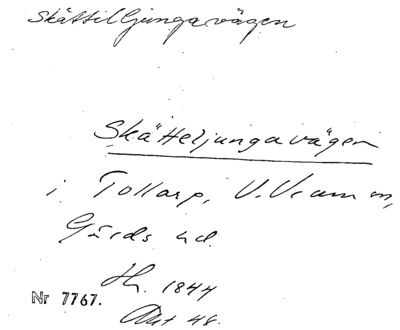 Skättilljungavägen
Skätteljungavägen
i Tollarp, V. Vram sn,
Gärds hd.
Hh. 1844
Nr 7767.
Akt 48.